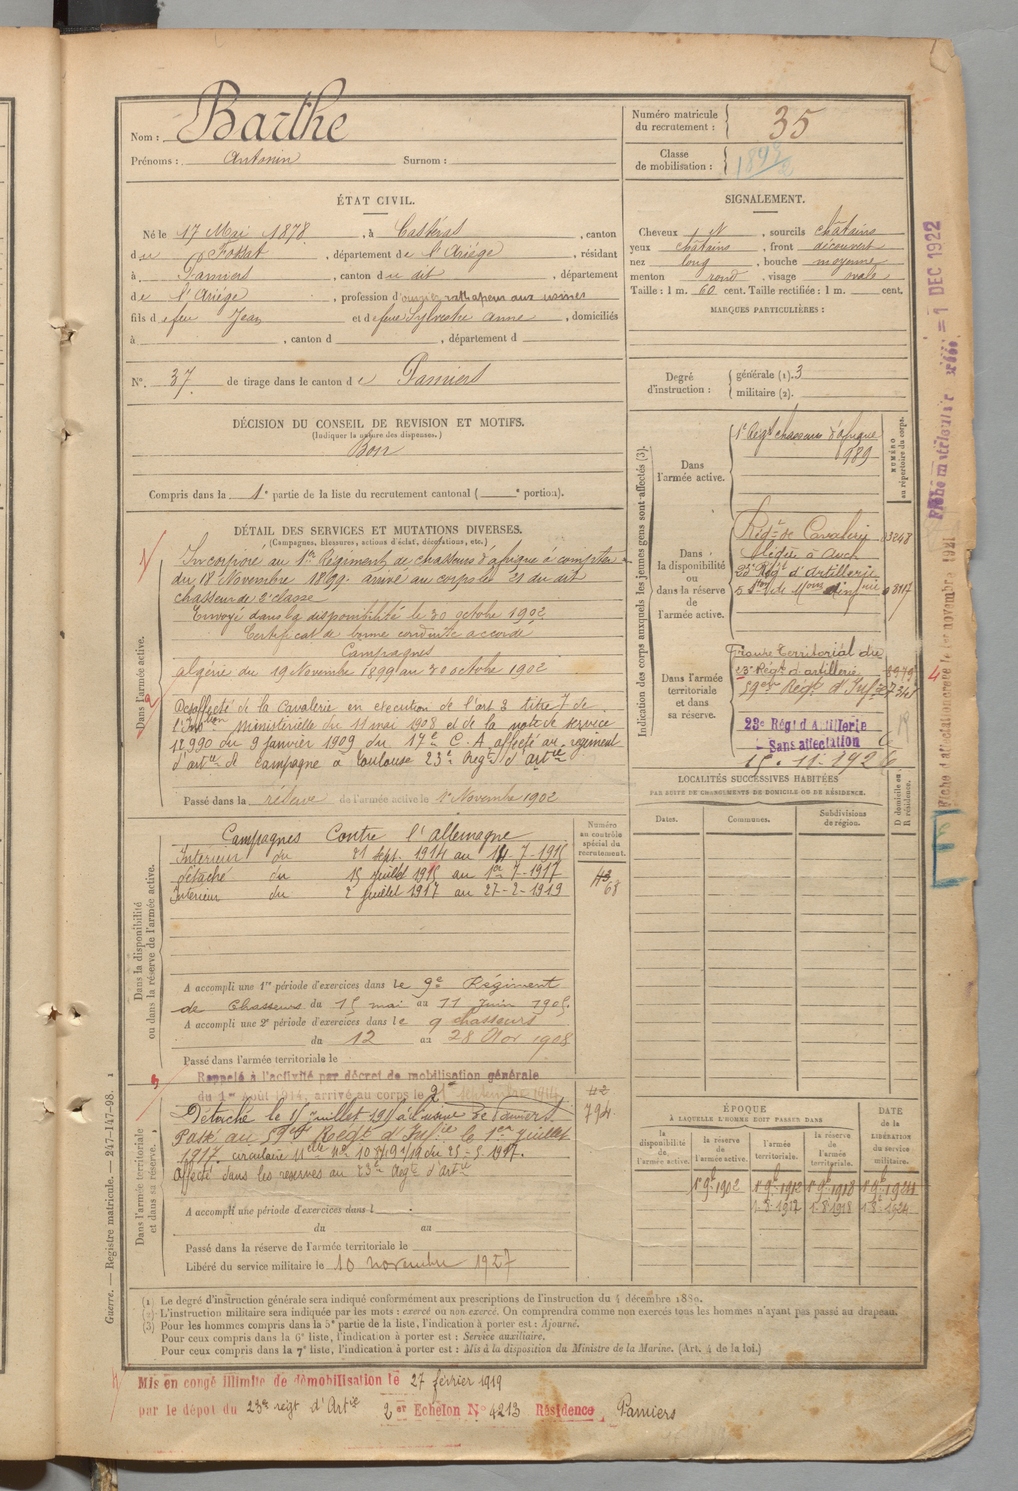 Nom : Barthe
Prénoms : Antonin Surnom :
Numéro matricule du recrutement : 35
Classe de mobilisation :
ÉTAT CIVIL.
Né le 17 Mai 1878, à Castéras, canton
du Fossat, département de l'Ariège, résidant
à Pamiers, canton du dit, département
de l'Ariège, profession d'ouvrier aux usines
fils de feu Jean et de feue Sylvestre Anne, domiciliés
à , canton d , département d
N° 37 de tirage dans le canton de Pamiers
SIGNALEMENT.
Cheveux , sourcils châtains
yeux châtains, front découvert
nez long, bouche moyenne
menton rond, visage ovale
Taille : 1 m. 60 cent. Taille rectifiée : 1 m. cent.
MARQUES PARTICULIÈRES :
Degré d'instruction : générale (1). 3
militaire (2).
DÉCISION DU CONSEIL DE REVISION ET MOTIFS.
(Indiquer la nature des dispenses.)
Bon
Compris dans la 1e partie de la liste du recrutement cantonal ( e portion).
DÉTAIL DES SERVICES ET MUTATIONS DIVERSES.
(Campagnes, blessures, actions d'éclat, décorations, etc.)
Dans l'armée active.
Incorporé au 1er Régiment de chasseurs d'afrique à compter
du 18 Novembre 1899. arrivé au corps le 21 du dit
chasseur de 2e classe
Envoyé dans la disponibilité le 30 octobre 1902
Certificat de bonne conduite accordé
Campagnes
algérie du 19 Novembre 1899 au 30 octobre 1902
Désaffecté de la Cavalerie en exécution de l'art 3 titre 7 de
l'Instion Ministérielle du 11 mai 1908 et de la note de service
12990 du 9 janvier 1909 du 17e C. A. affecté au régiment
d'artie de campagne à Toulouse 23e Régt d'artie
Passé dans la réserve de l'armée active le 1er Novembre 1902
Indication des corps auxquels les jeunes gens sont affectés (3).
NUMÉRO au répertoire du corps.
Dans l'armée active.
1r Régt chasseurs d'afrique
989
Dans la disponibilité ou dans la réserve de l'armée active.
Régt de Cavalerie
légère à Auch
23e Régt d'Artillerie
Dans l'armée territoriale et dans sa réserve.
Groupe territorial du
23e Régt d'artillerie
59ème Régt d'Infie
23e Régt d'Artillerie
Sans affectation
15.11.1926
Dans la disponibilité ou dans la réserve de l'armée active.
Numéro au contrôle spécial du recrutement.
Campagnes Contre l'allemagne
Intérieur du 21 sept. 1914 au 14-7-1915
détaché du 15 juillet 1915 au 1er-7-1917
Intérieur du 2 juillet 1917 au 27-2-1919
68
A accompli une 1re période d'exercices dans le 9e Régiment
de Chasseurs du 15 mai au 11 juin 1905.
A accompli une 2e période d'exercices dans le 9 chasseurs
du 12 au 28 Nov 1908
Passé dans l'armée territoriale le
Rappelé à l'activité par décret de mobilisation générale
du 1er août 1914, arrivé au corps le 21 septembre 1914
Dans l'armée territoriale et dans sa réserve.
794
Détaché le 15 juillet 1915 à l'usine de Pamiers
Passé au 59ème Régt d'Infie le 1er juillet
1917.
Affecté dans les réserves au 23e Régt d'artie
A accompli une période d'exercices dans l
du au
Passé dans la réserve de l'armée territoriale le
Libéré du service militaire le 10 novembre 1927
LOCALITÉS SUCCESSIVES HABITÉES
PAR SUITE DE CHANGEMENTS DE DOMICILE OU DE RÉSIDENCE.
Dates. Communes. Subdivisions de région. D domicile ou R résidence.
ÉPOQUE
À LAQUELLE L'HOMME DOIT PASSER DANS
la disponibilité de l'armée active. la réserve de l'armée active. l'armée territoriale. la réserve de l'armée territoriale. DATE de la LIBÉRATION du service militaire.
1er 9b 1902 1er 9b 1912 1er 9b 1918
1.8.1918
Fiche matriculaire 1 DEC 1922
Guerre. — Registre matricule. — 247-147-98. 1
(1) Le degré d'instruction générale sera indiqué conformément aux prescriptions de l'instruction du 4 décembre 1889.
(2) L'instruction militaire sera indiquée par les mots : exercé ou non exercé. On comprendra comme non exercés tous les hommes n'ayant pas passé au drapeau.
(3) Pour les hommes compris dans la 5e partie de la liste, l'indication à porter est : Ajourné.
Pour ceux compris dans la 6e liste, l'indication à porter est : Service auxiliaire.
Pour ceux compris dans la 7e liste, l'indication à porter est : Mis à la disposition du Ministre de la Marine. (Art. 4 de la loi.)
Mis en congé illimité de démobilisation le 27 février 1919
par le dépôt du 23e régt d'Artie 2er Echelon N° 4213 Résidence Pamiers